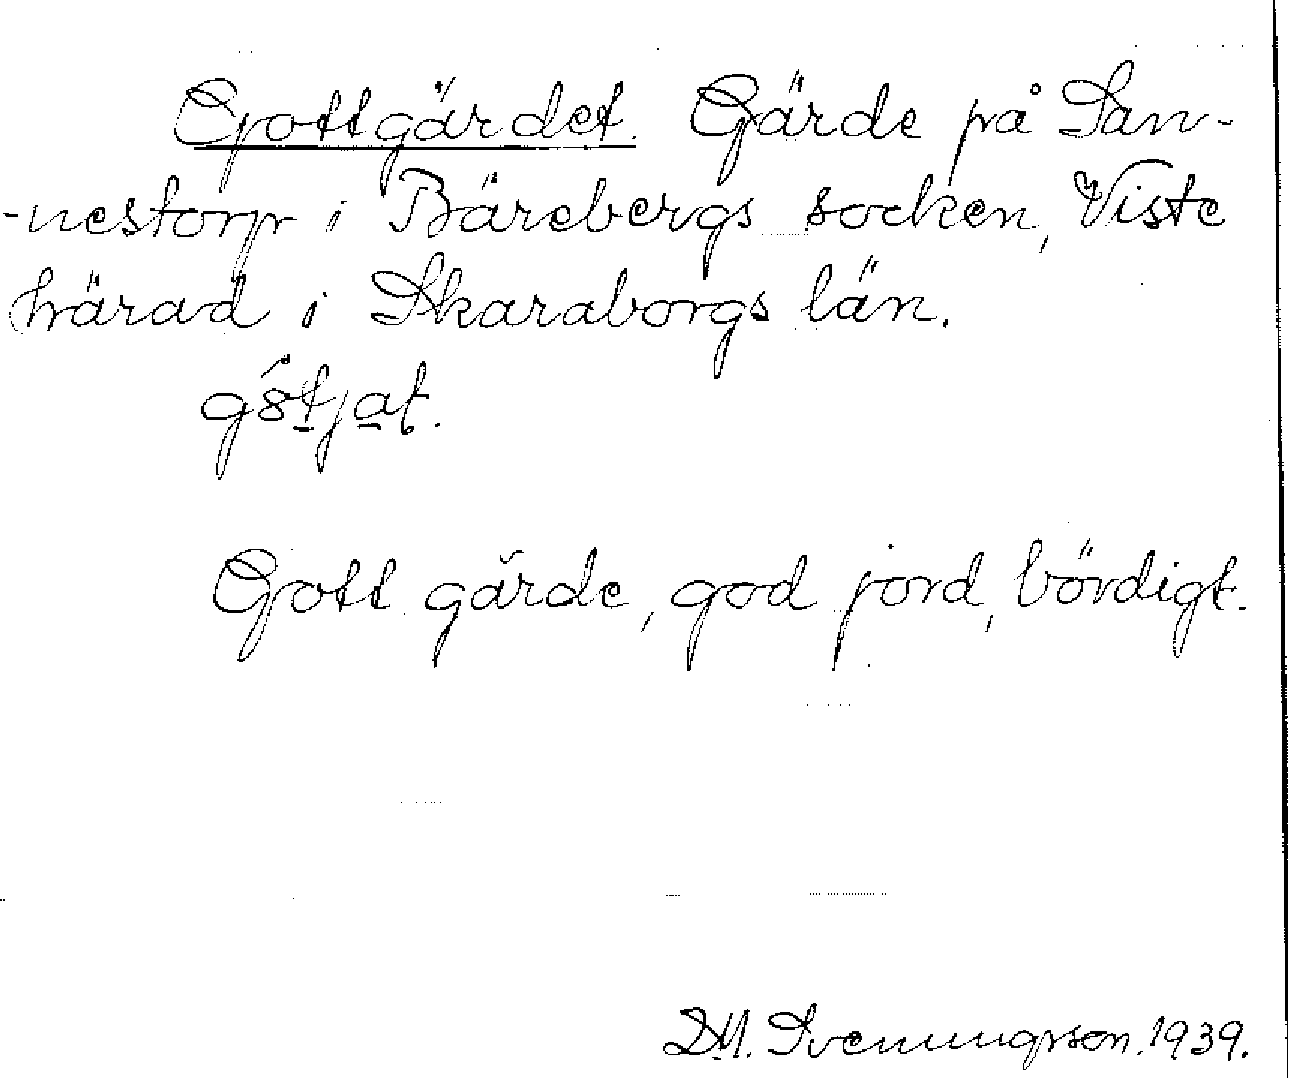 Gottgärdet. Gärde på San-
-nestorp i Bärebergs socken, Viste
härad i Skaraborgs län.
Gott gärde, god jord, bördigt.
D.M. Svenungsson. 1939.